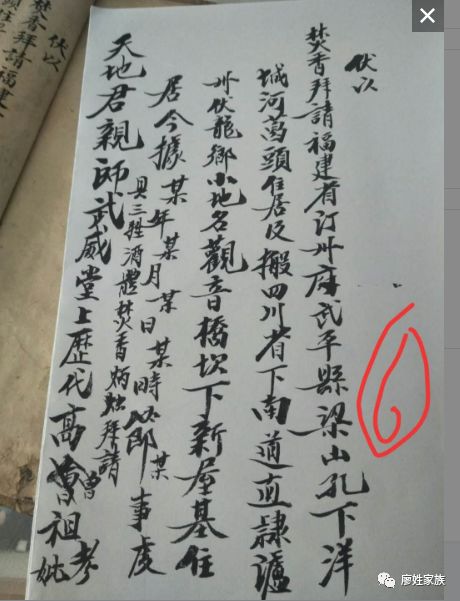 伏以
焚香拜請福建省汀州府武平縣梁山孔下洋
城河萬頭住居后搬四川省下南道直隸瀘
州伏龍鄉小地名觀音橋坎下新屋基住
居今據某年某月某日某時即某事虔
具三牲酒醴焚香炳燭拜請
天地君親師武威堂上歷代高曾曾祖考妣
伏以
焚香拜請福建
廖姓家族